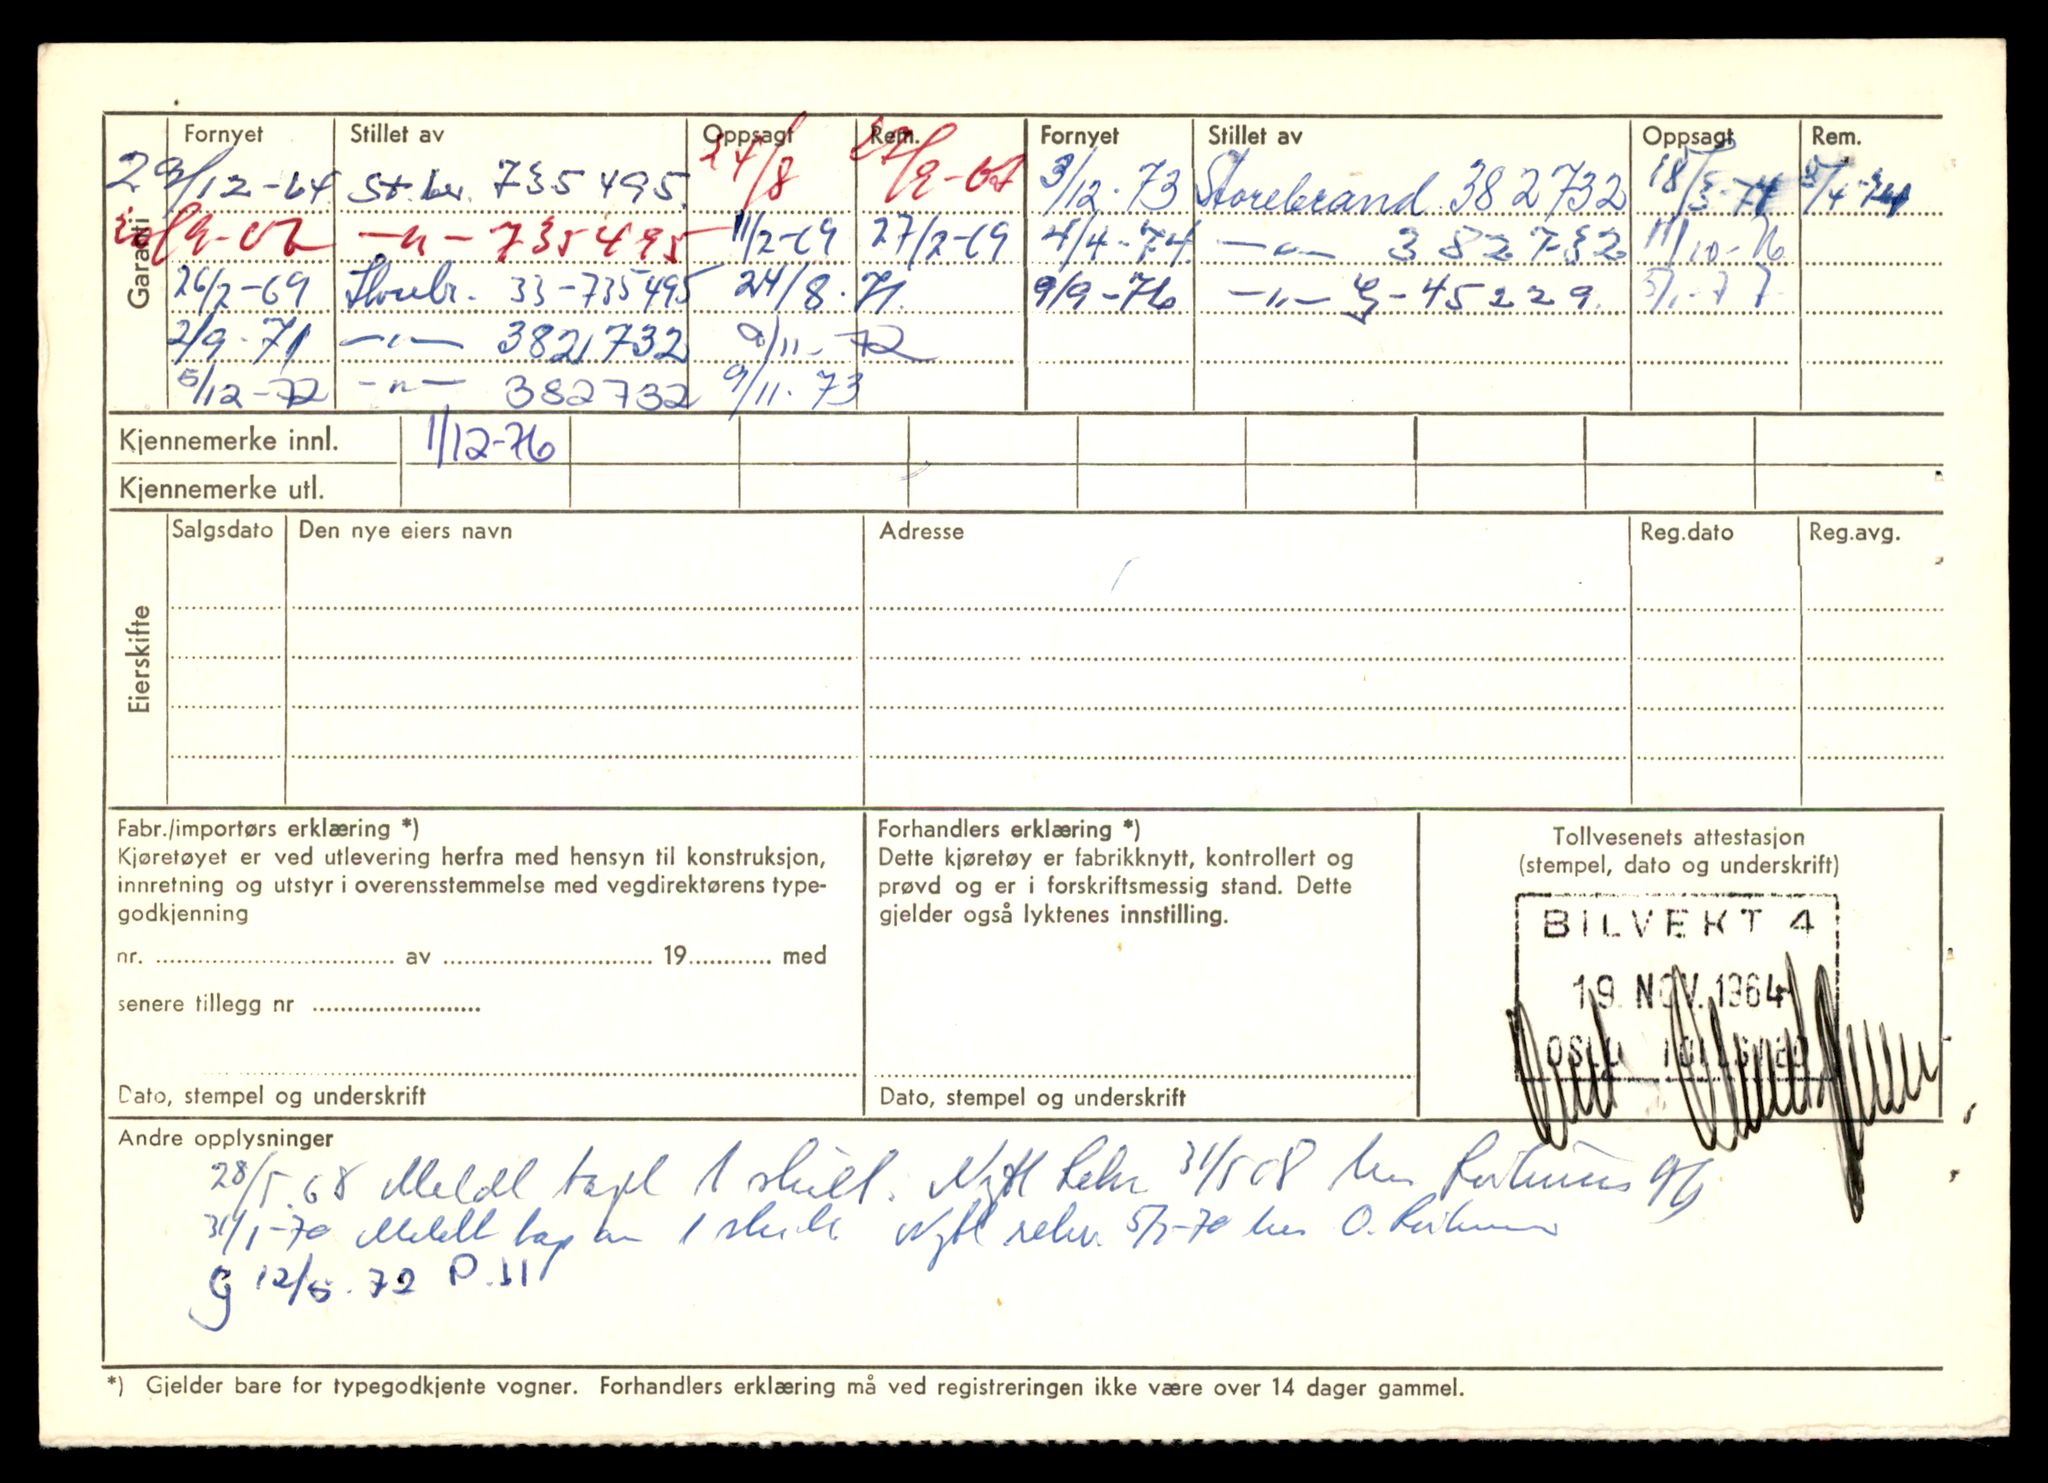 Garanti
Fornyet Stillet av Oppsagt Rem. Fornyet Stillet av Oppsagt Rem.
29/12-64 St.br. 735495 24/8 3/12-73 Storebrand 382732 18/3-74
-"- 735495 11/2-69 27/2-69 4/4-74 -"- 382732 11/10-76
26/2-69 Storebr. 33-735495 24/8-71 9/9-76 -"- 45229 5/1-77
2/9-71 -"- 382732 9/11-72
5/12-72 -"- 382732 9/11-73
Kjennemerke innl. 1/12-76
Kjennemerke utl.
Eierskifte
Salgsdato Den nye eiers navn Adresse Reg.dato Reg.avg.
Fabr./importørs erklæring *)
Kjøretøyet er ved utlevering herfra med hensyn til konstruksjon,
innretning og utstyr i overensstemmelse med vegdirektørens type-
godkjenning
nr. av 19 med
senere tillegg nr
Dato, stempel og underskrift
Forhandlers erklæring *)
Dette kjøretøy er fabrikknytt, kontrollert og
prøvd og er i forskriftsmessig stand. Dette
gjelder også lyktenes innstilling.
Dato, stempel og underskrift
Tollvesenets attestasjon
(stempel, dato og underskrift)
BILVEKT 4
19. NOV. 1964
OSLO
Andre opplysninger
28/5.68 Meldt tapt 1 skilt. Nytt rekv 31/5 68 hos
31/1-70 Meldt tap av 1 skilt Nytt rekv. 5/2-70 hos O.
G 12/6.72 P.11
*) Gjelder bare for typegodkjente vogner. Forhandlers erklæring må ved registreringen ikke være over 14 dager gammel.